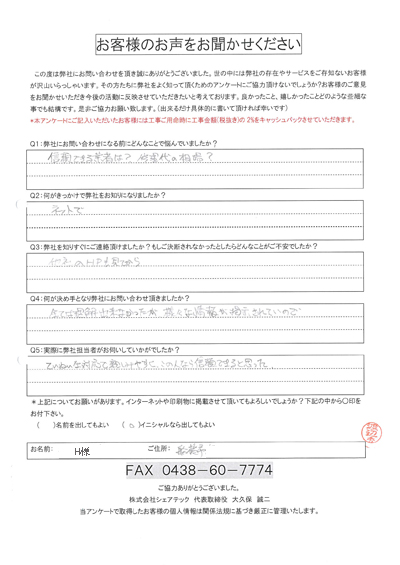 お客様のお声をお聞かせください
この度は弊社にお問い合わせを頂き誠にありがとうございました。世の中には弊社の存在やサービスをご存知ないお客様
が沢山いらっしゃいます。その方たちに弊社をよく知って頂くためのアンケートにご協力頂けないでしょうか?お客様のご意見
をお聞かせいただき今後の活動に反映させていただきたいと考えております。良かったこと、嬉しかったことどのような些細な
事でも結構です。是非ご協力お願い致します。(出来るだけ具体的に書いて頂ければ幸いです)
*本アンケートにご記入いただいたお客様には工事ご用命時に工事金額(税抜き)の 2%をキャッシュバックさせていただきます。
Q1:弊社にお問い合わせになる前にどんなことで悩んでいましたか?
信頼できる業者は?
Q2:何がきっかけで弊社をお知りになりましたか?
ネットで
Q3:弊社を知りすぐにご連絡頂けましたか?もしご決断されなかったとしたらどんなことがご不安でしたか?
他社のHPを見てから
Q4:何が決め手となり弊社にお問い合わせ頂きましたか?
Q5:実際に弊社担当者がお伺いしていかがでしたか?
ていねいな対応で話しやすく、この人なら信頼できると思った
*上記についてお願いがあります。インターネットや印刷物に掲載させて頂いてもよろしいでしょうか?下記の中から〇印を
お付下さい。
( )名前を出してもよい (○)イニシャルなら出してもよい
お名前: H様 ご住所:
FAX 0438-60-7774
ご協力ありがとうございました。
株式会社シェアテック 代表取締役 大久保 誠二
当アンケートで取得したお客様の個人情報は関係法規に基づき厳正に管理いたします。